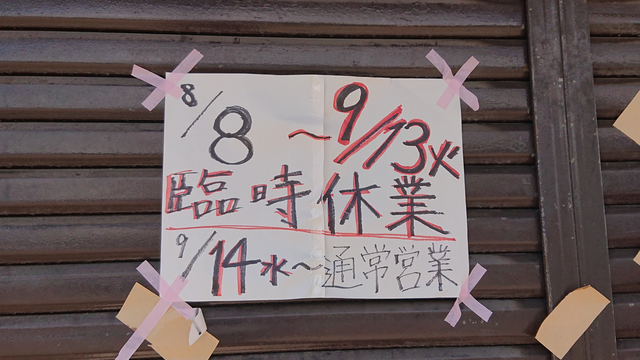 8/8 〜9/13火
臨時休業
9/14水〜通常営業